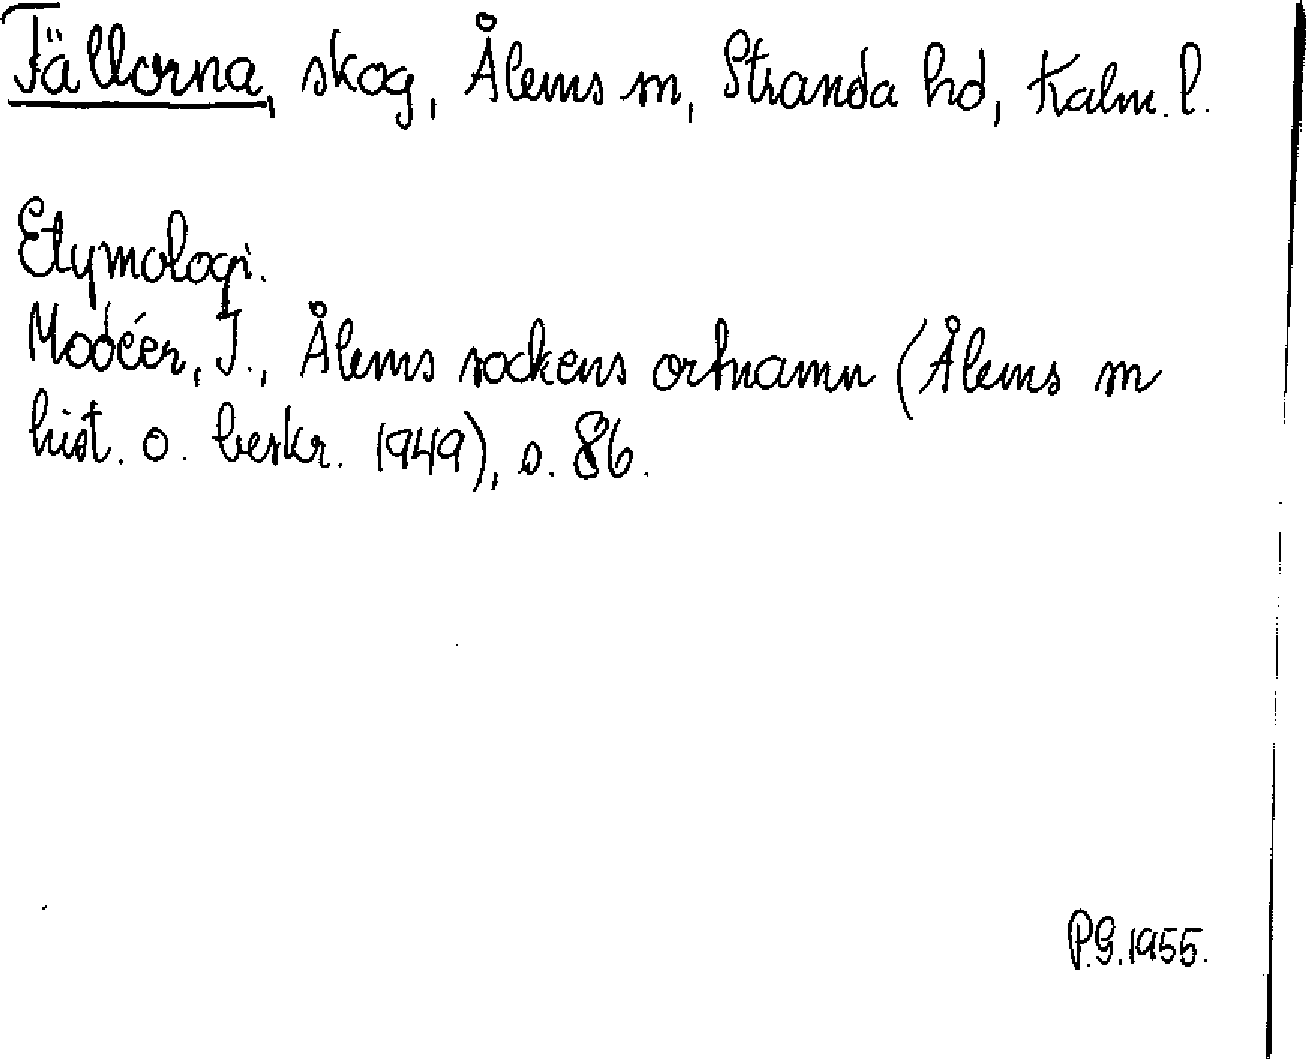 Fällorna, skog, Ålems sn, Stranda hd, Kalm. l.
Etymologi.
Modéer, I., Ålems sockens ortnamn (Ålems sn
hist. o. beskr. 1949), s. 86.
P.G. 1955.